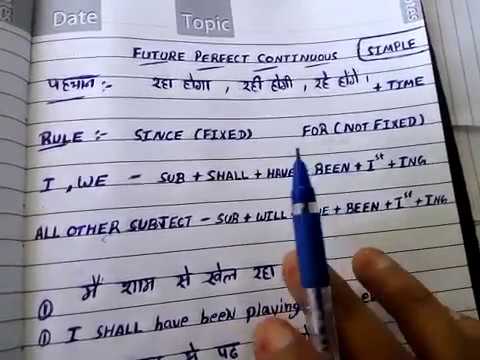 Date Topic
FUTURE PERFECT CONTINUOUS (SIMPLE
पहचान :- रहा होगा , रही होगी , रहे होंगे। + TIME
RULE :- SINCE (FIXED) FOR (NOT FIXED)
I , WE - SUB + SHALL + HAVE BEEN + Ist + ING
ALL OTHER SUBJECT - SUB + WILL + BEEN + Ist + ING
① मैं शाम से खेल रहा
① I SHALL have been playing
मे पढ़